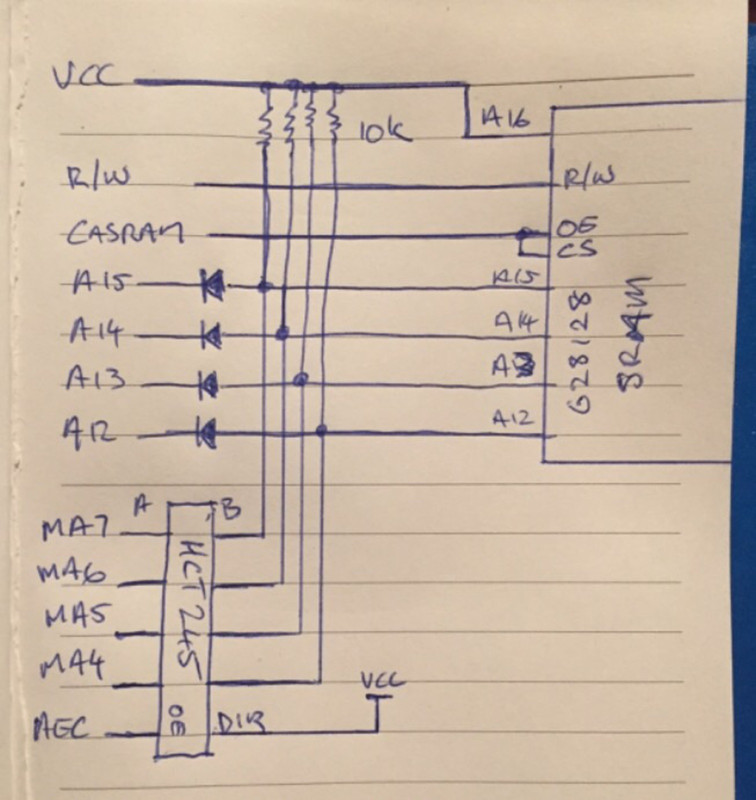 VCC
10K
A16
R/W R/W
CASRAM OE
CS
A15 A15
A14 A14
A13 A13
A12 A12
628128
SRAM
A B
MA7
MA6
MA5
MA4
HCT245
VCC
AEC OE DIR